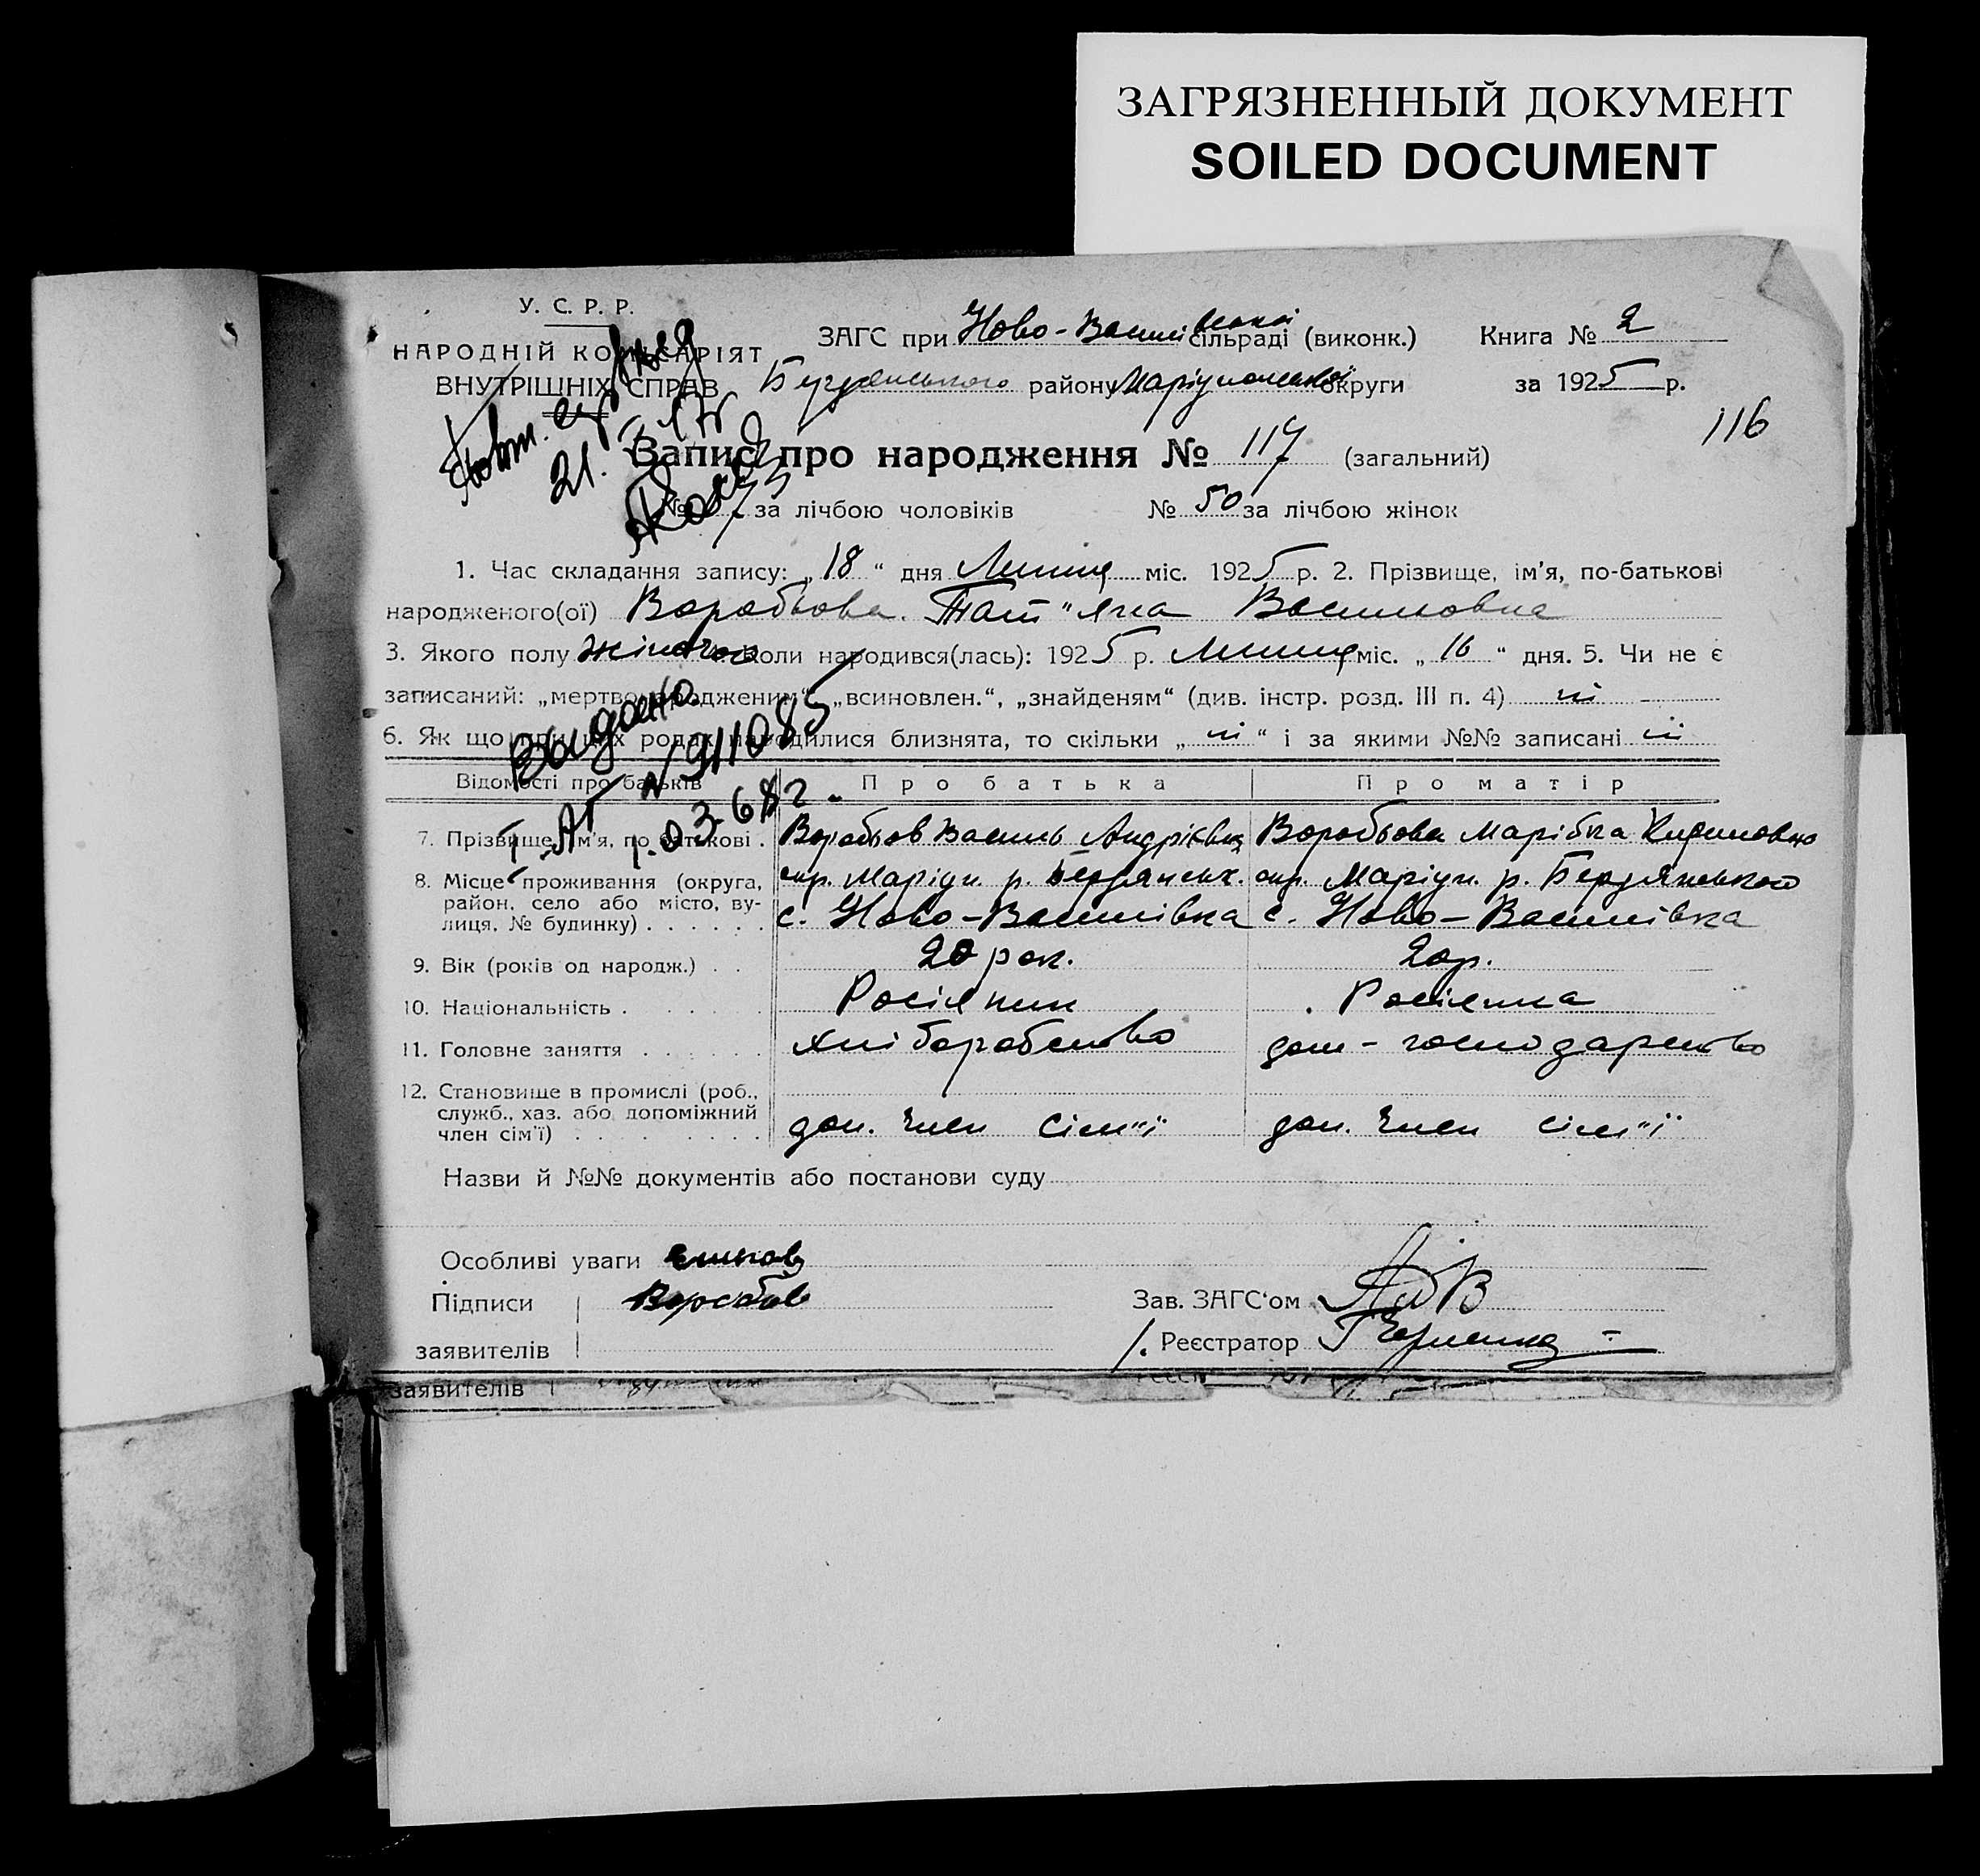 ЗАГРЯЗНЕННЫЙ ДОКУМЕНТ
SOILED DOCUMENT
У. С. Р. Р.
НАРОДНІЙ КОМІСАРІЯТ
ВНУТРІШНІХ СПРАВ
ЗАГС при Ново-Василівської сільраді (виконк.) Книга № 2
Бердянського району Маріупольської округи за 1925 р.
116
Повт.
21.
Запис про народження № 117 (загальний)
№ за лічбою чоловіків № 50 за лічбою жінок
1. Час складання запису: „18“ дня Липня міс. 1925 р. 2. Прізвище, ім’я, по-батькові
народженого(ої) Воробьова Тат"яна Василовна
3. Якого полу жіночого Коли народився(лась): 1925 р. Липня міс. „16“ дня. 5. Чи не є
записаний: „мертвонародженим“, „всиновлен.“, „знайденям“ (див. інстр. розд. III п. 4) ні
6. Як що при цих родах народилися близнята, то скільки „ні“ і за якими №№ записані ні
Видано
№ 911085
1.03.68 г.
Відомості про батьків Про батька Про матір
7. Прізвище, ім’я, по батькові . Воробьов Василь Андрієвич Воробьова Марія Кириловна
8. Місце проживання (округа, окр. Маріуп. р. Бердянськ. окр. Маріуп. р. Бердянського
район, село або місто, ву- с. Ново-Василівка с. Ново-Василівка
лиця, № будинку) . . . . . .
9. Вік (років од народж.) . . 20 рок. 20 р.
10. Національність . Росіянин Росіянка
11. Головне заняття . . . . . . хліборобство дом-господарство
12. Становище в промислі (роб.,
служб., хаз. або допоміжний
член сім’ї) . . . . . . . . дом. член сім"ї дом. член сім"ї
Назви й №№ документів або постанови суду
Особливі уваги
Підписи Воробьов Зав. ЗАГС‘ом
заявителів Реєстратор
заявителів